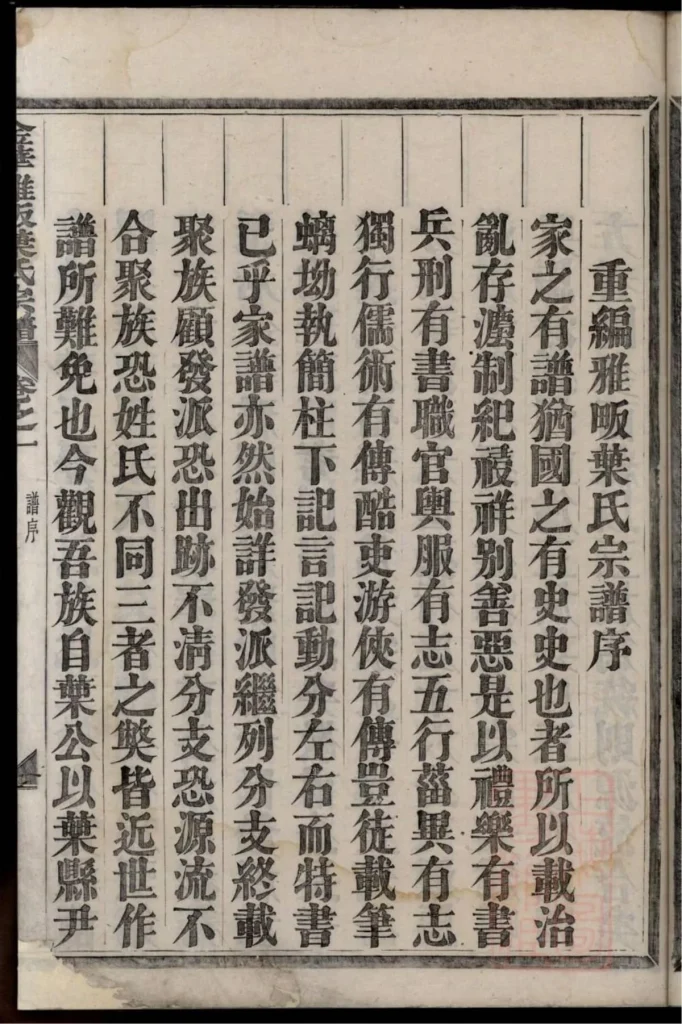 重編雅畈葉氏宗譜序
家之有譜猶國之有史史也者所以載治
亂存灋制紀祲祥别善惡是以禮樂有書
兵刑有書職官輿服有志五行菑異有志
獨行儒術有傳酷吏游俠有傳豈徒載筆
螭坳執簡柱下記言記動分左右而特書
已乎家譜亦然始詳發派繼列分支終載
聚族顧發派恐出跡不清分支恐源流不
合聚族恐姓氏不同三者之獘皆近世作
譜所難免也今觀吾族自葉公以葉縣尹
金華雅畈葉氏宗譜 卷之一 譜序